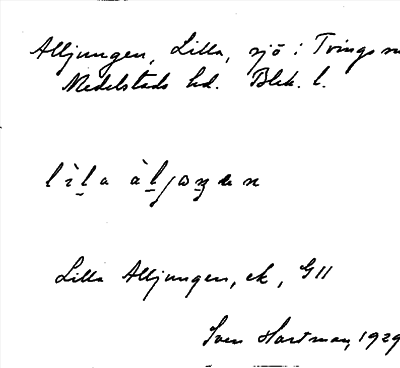 Alljungen, Lilla, sjö i Tvings
Medelstads hd. Blek. l.
Lilla Alljungen, ek, G11
Sven Hartman, 1929